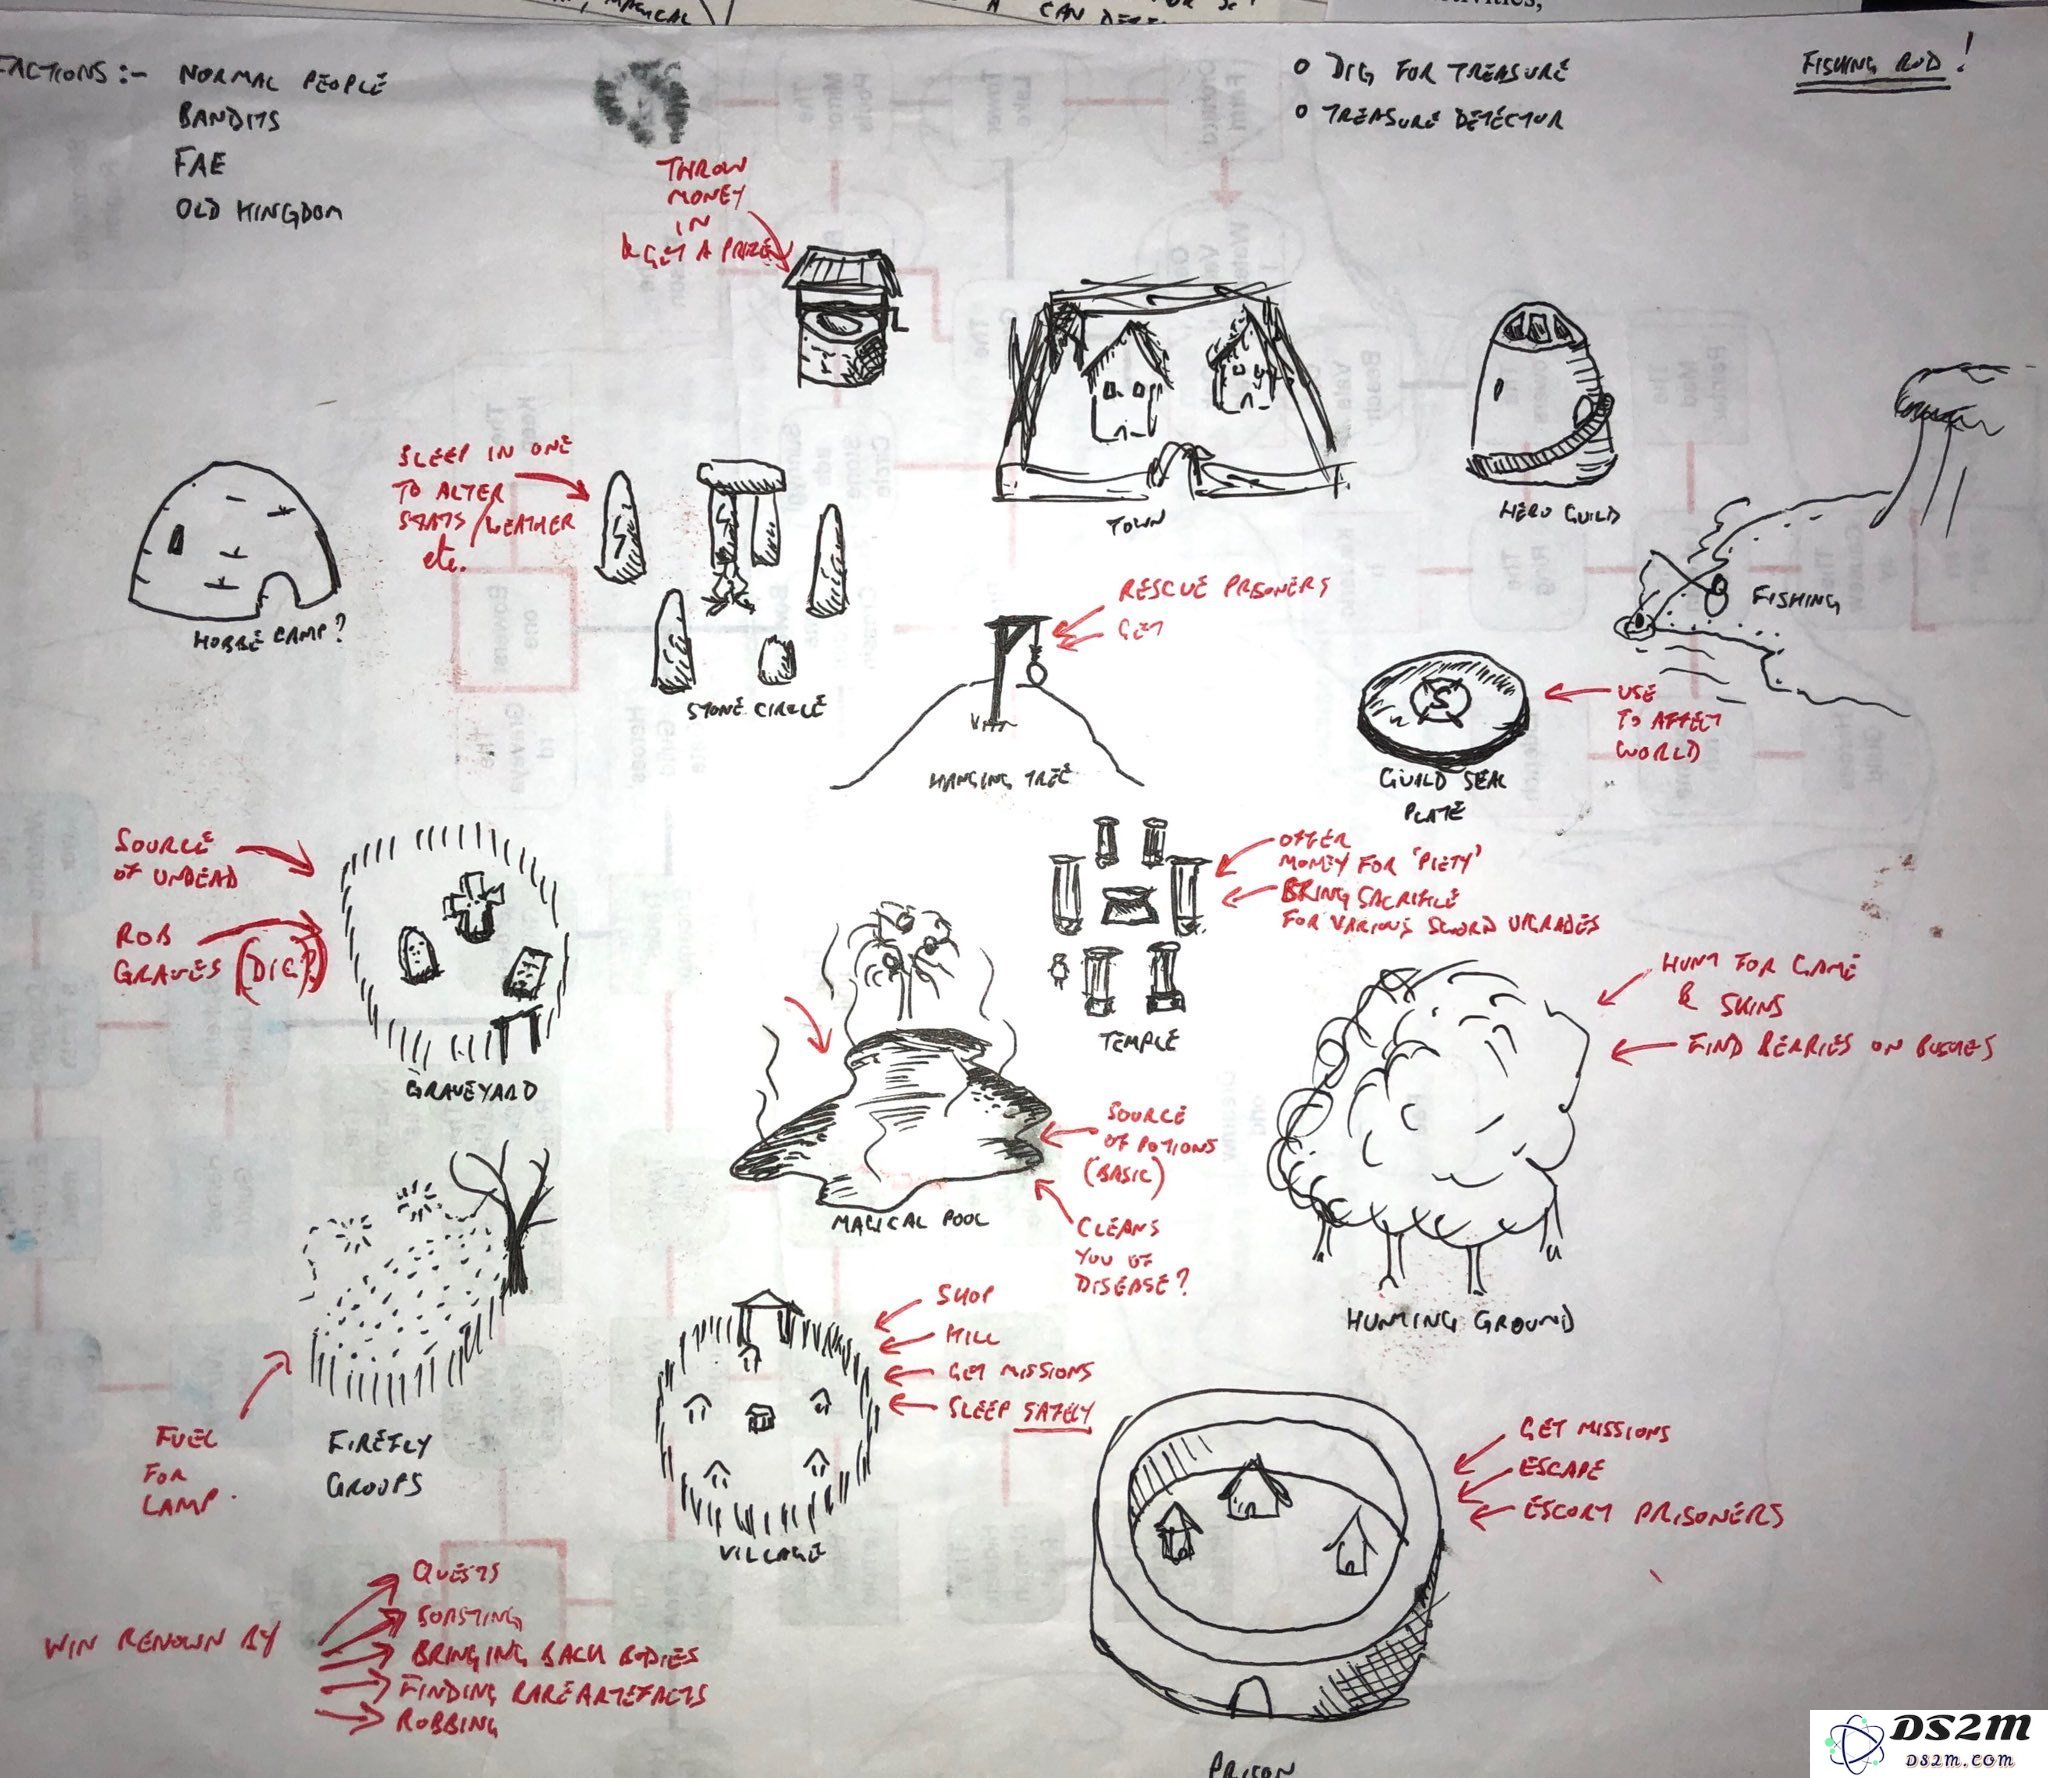 FACTIONS :- NORMAL PEOPLE
BANDITS
FAE
OLD KINGDOM
O DIG FOR TREASURE
O TREASURE DETECTOR
FISHING ROD!
THROW
MONEY
IN
& GET A PRIZE
TOWN
HERO GUILD
FISHING
SLEEP IN ONE
TO ALTER
STATS / WEATHER
etc.
HOBBE CAMP?
STONE CIRCLE
RESCUE PRISONERS
GET
HANGING TREE
S
GUILD SEAL
PLATE
USE
TO AFFECT
WORLD
SOURCE
OF UNDEAD
ROB
GRAVES (DIG?)
GRAVEYARD
OFFER
MONEY FOR 'PIETY'
BRING SACRIFICE
FOR VARIOUS SWORD UPGRADES
TEMPLE
HUNT FOR GAME
& SKINS
FIND BERRIES ON BUSHES
HUNTING GROUND
SOURCE
OF POTIONS
(BASIC)
MAGICAL POOL
CLEANS
YOU OF
DISEASE?
FUEL
FOR
LAMP.
FIREFLY
GROUPS
SHOP
KILL
GET MISSIONS
SLEEP SAFELY
VILLAGE
GET MISSIONS
ESCAPE
ESCORT PRISONERS
PRISON
WIN RENOWN BY
QUESTS
BOASTING
BRINGING BACK BODIES
FINDING RARE ARTEFACTS
ROBBING
DS2M
DS2M.COM